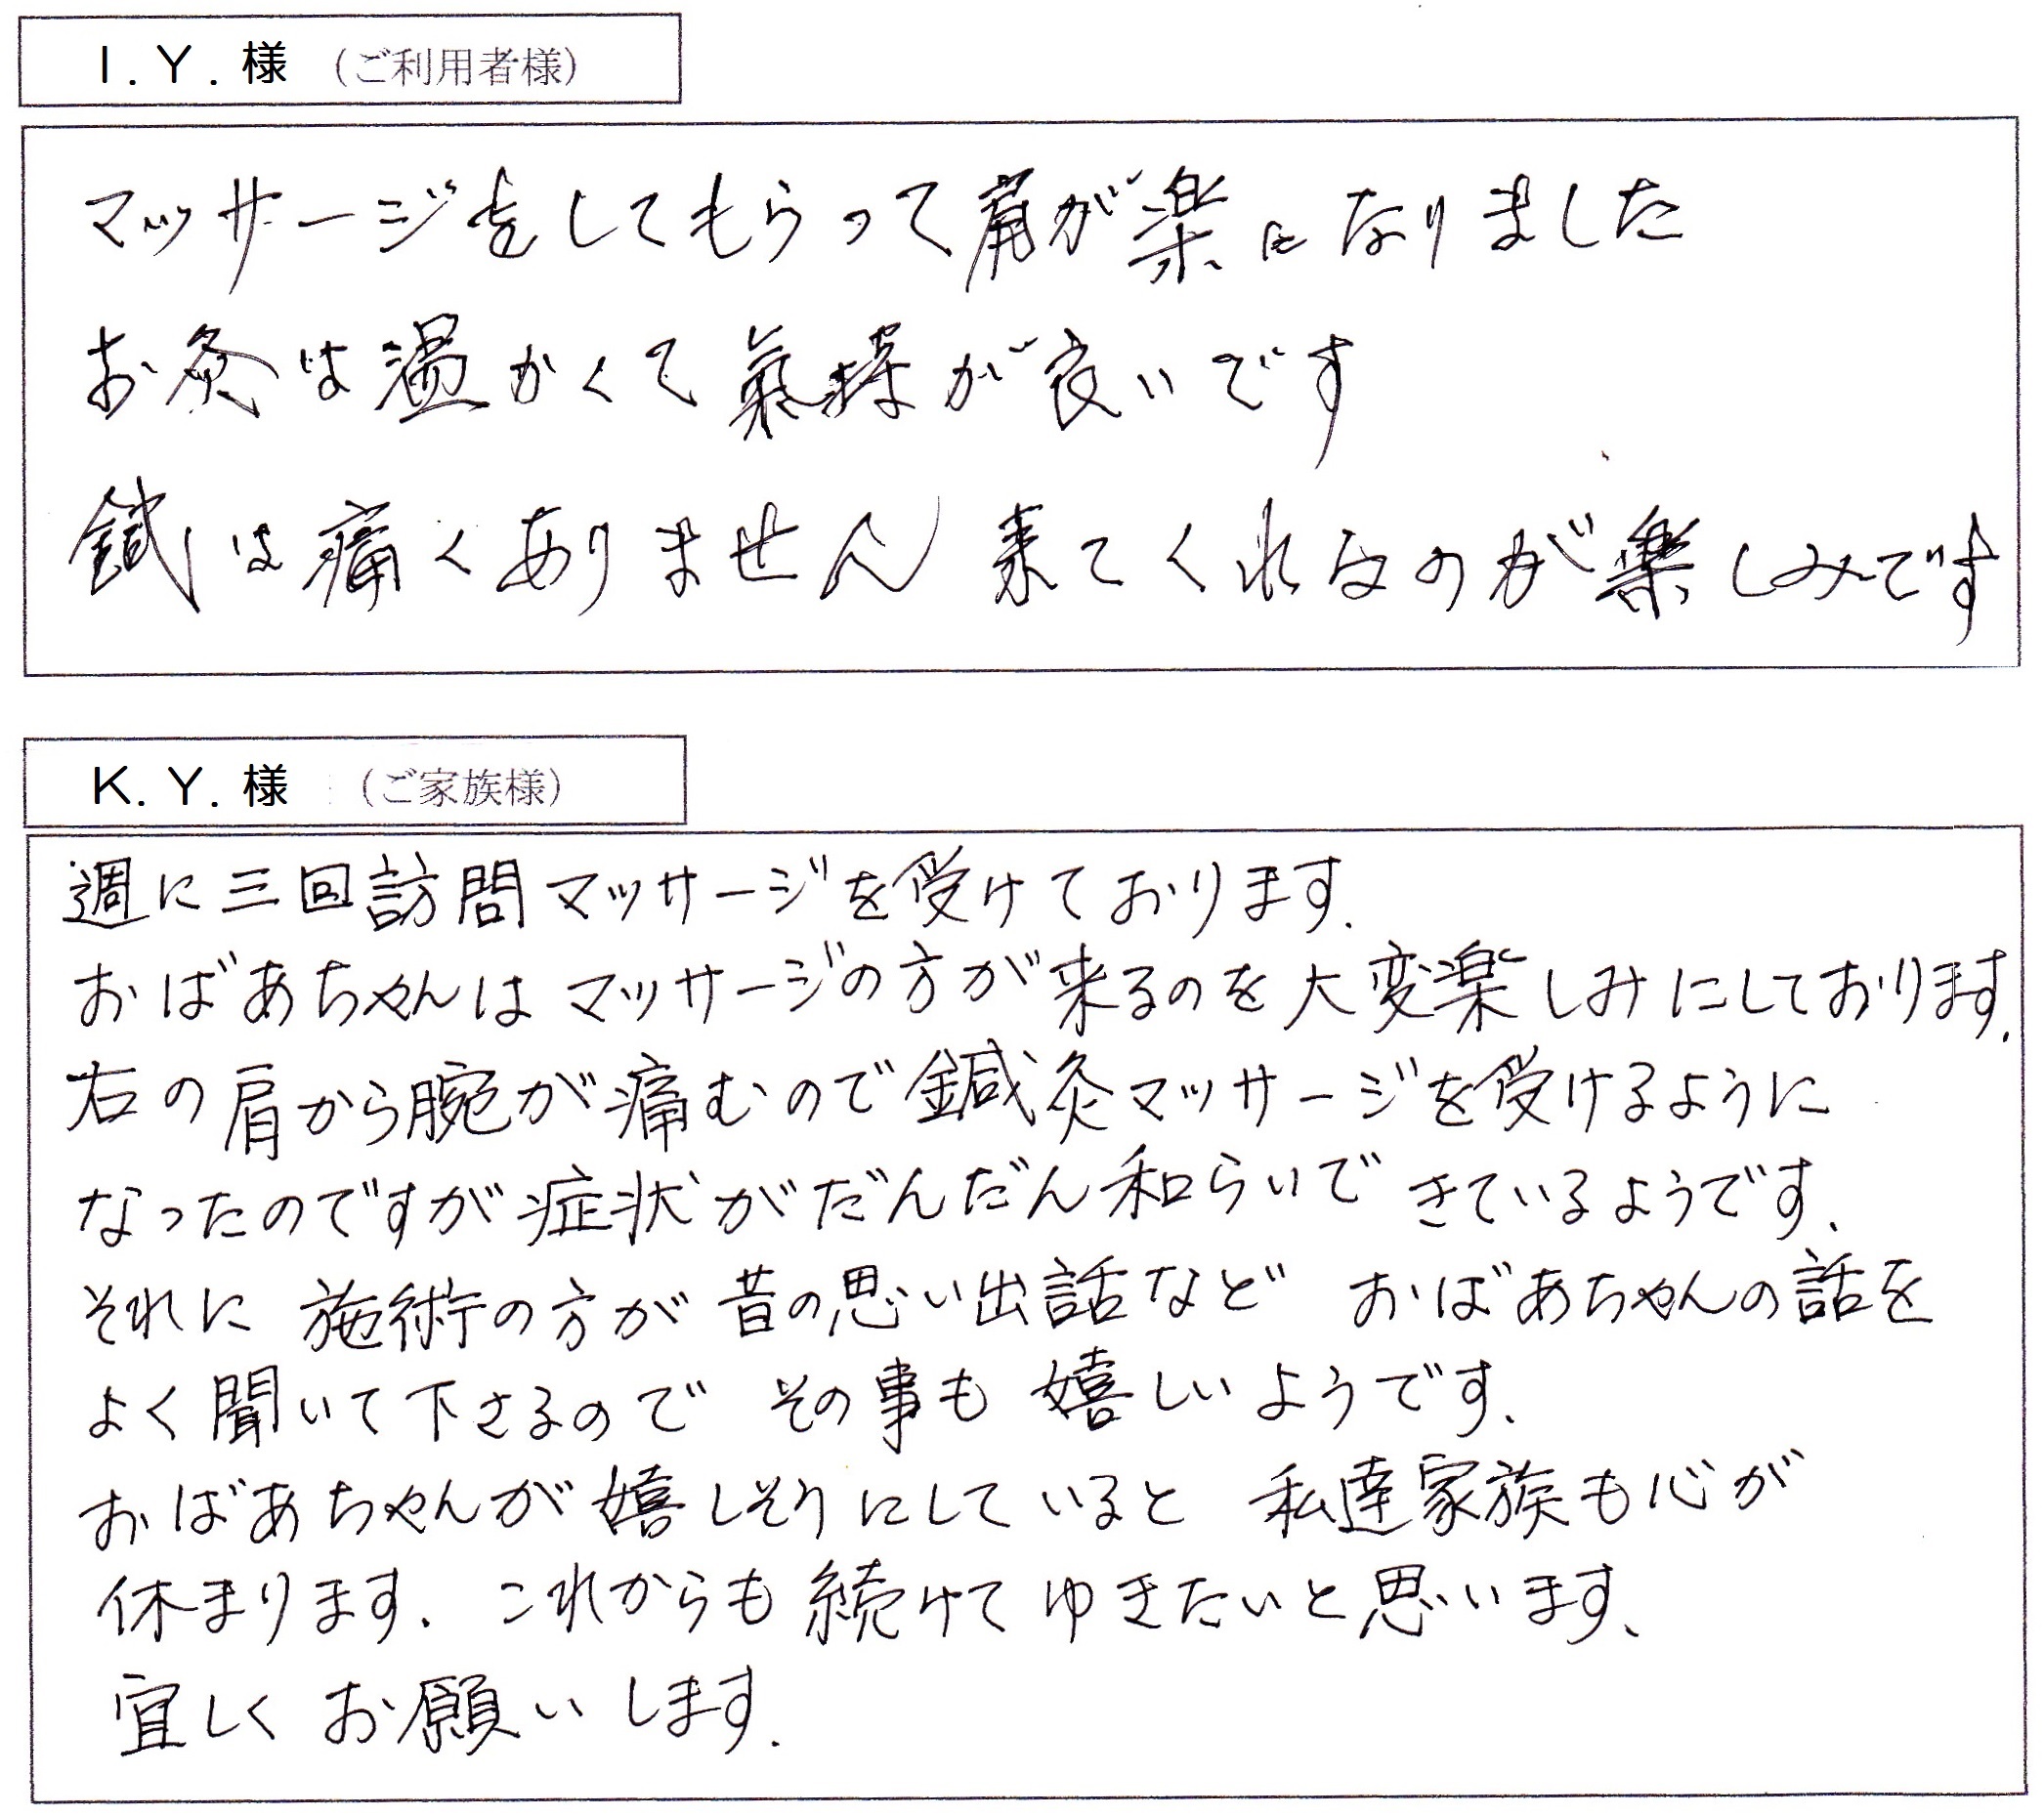 I.Y.様 (ご利用者様)
マッサージをしてもらって肩が楽になりました
お灸は温かくて氣持が良いです
鍼は痛くありません 来てくれるのが楽しみです
K.Y.様 (ご家族様)
週に三回訪問マッサージを受けております.
おばあちゃんはマッサージの方が来るのを大変楽しみにしております.
右の肩から腕が痛むので鍼灸マッサージを受けるように
なったのですが症状がだんだん和らいできているようです.
それに 施術の方が昔の思い出話など おばあちゃんの話を
よく聞いて下さるので その事も嬉しいようです.
おばあちゃんが嬉しそうにしていると 私達家族も心が
休まります. これからも続けてゆきたいと思います、
宜しくお願いします.